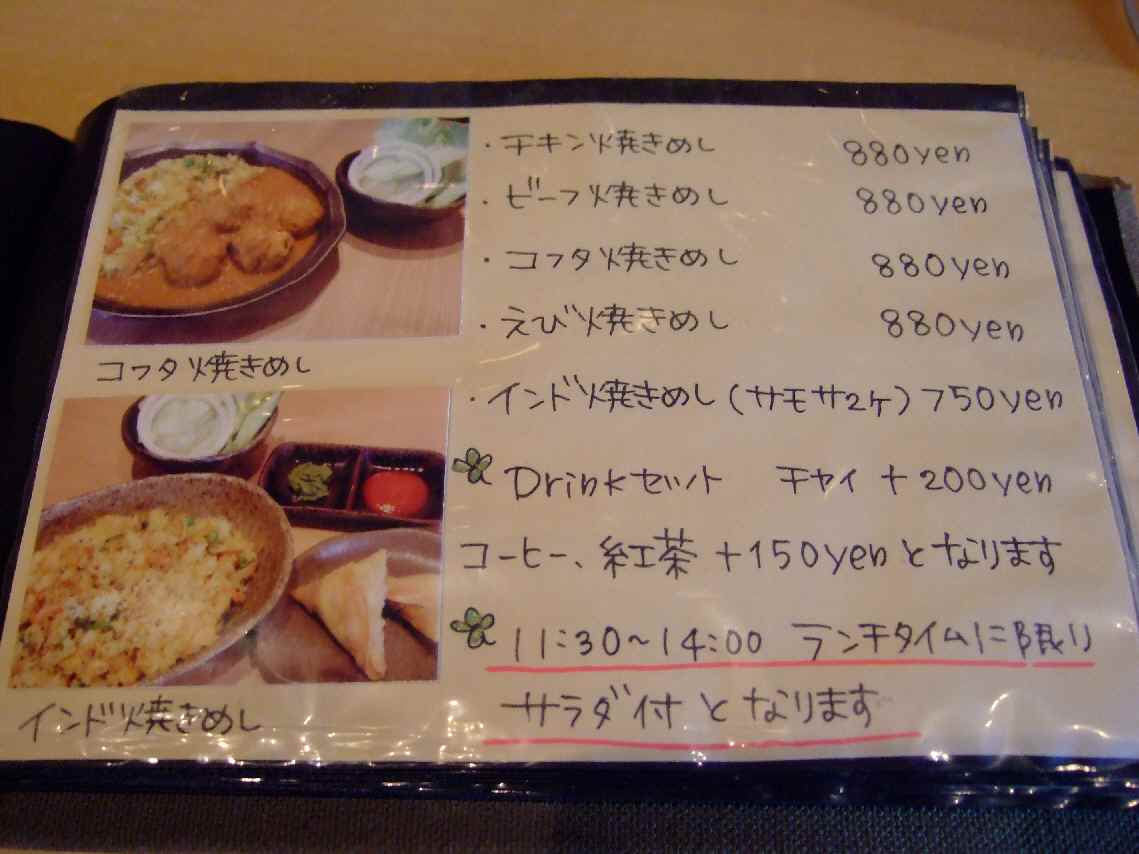 ・チキン焼きめし 880yen
・ビーフ焼きめし 880yen
・コフタ焼きめし 880yen
・えび焼きめし 880yen
コフタ焼きめし
・インド焼きめし(サモサ2ケ) 750yen
Drinkセット チャイ +200yen
コーヒー、紅茶 +150yenとなります
11:30~14:00 ランチタイムに限り
サラダ付となります
インド焼きめし